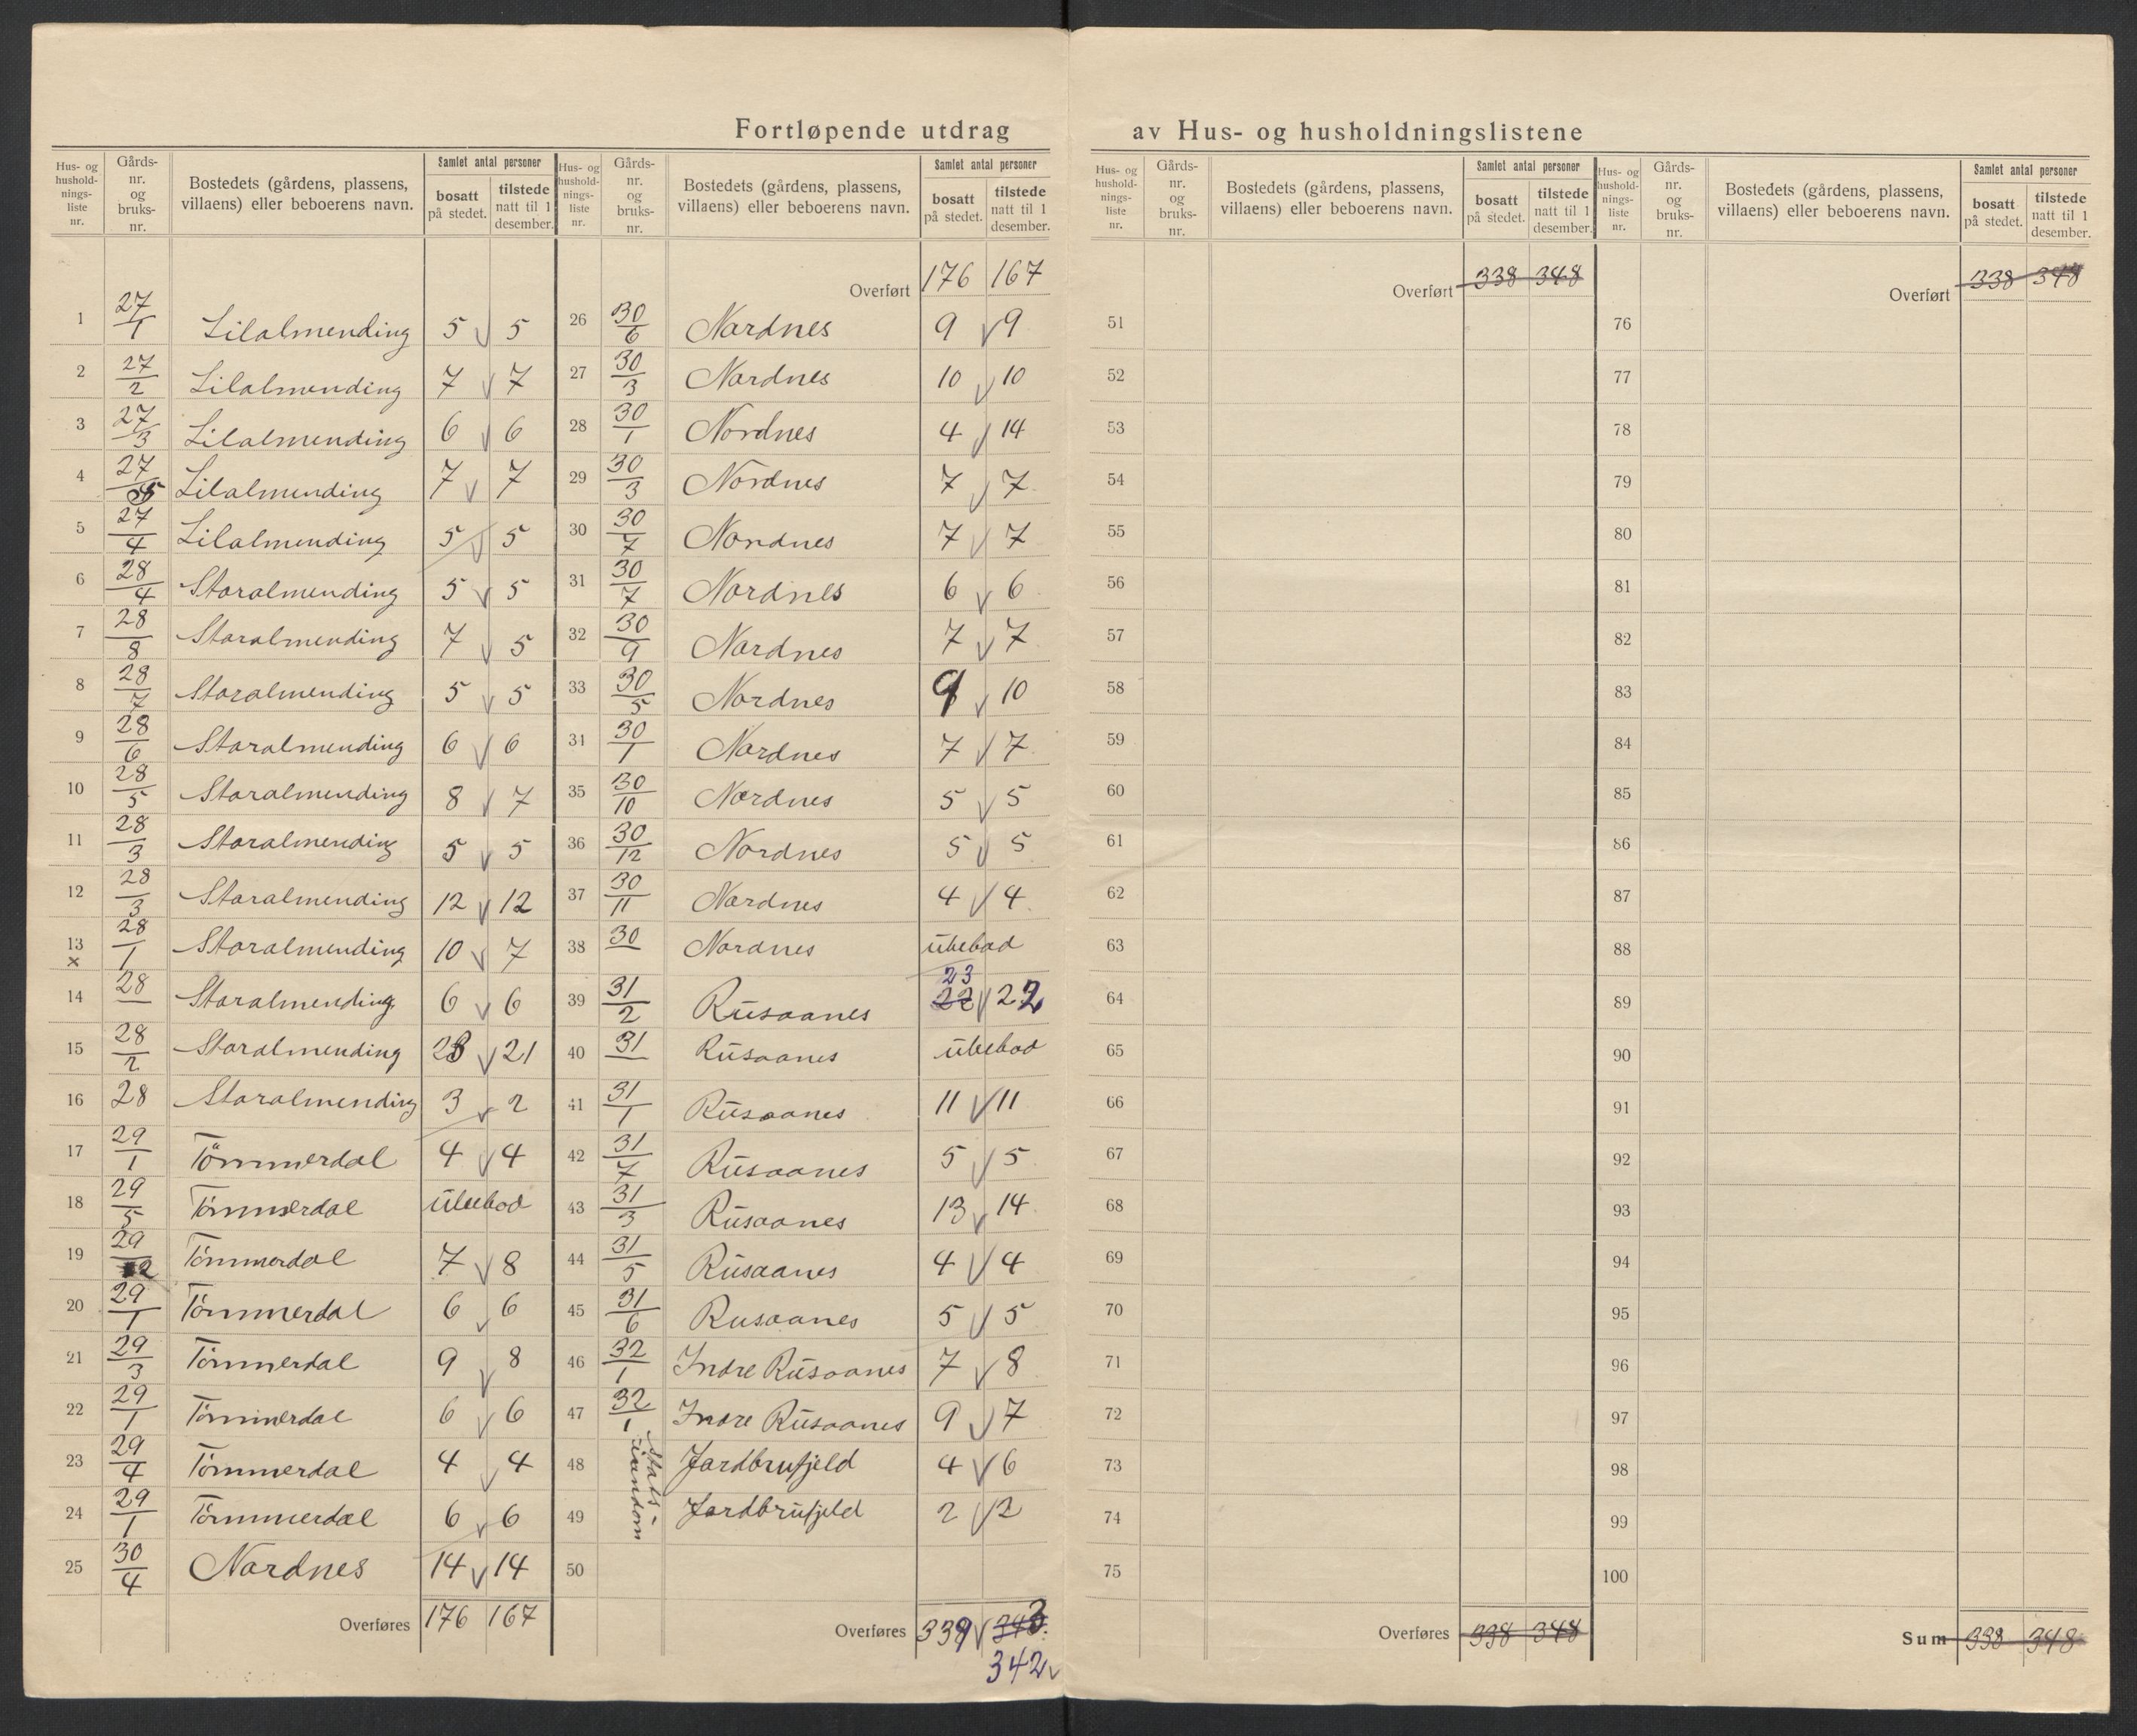 Fortløpende utdrag av Hus- og husholdningslistene
Hus- og hushold- nings- liste nr. | Gårds- nr. og bruks- nr. | Bostedets (gårdens, plassens, villaens) eller beboerens navn. | Samlet antal personer | bosatt på stedet. | tilstede natt til 1 desember.
1 27/1 Lilalmending 5 v 5
2 27/2 Lilalmending 7 v 7
3 27/3 Lilalmending 6 v 6
4 27/5 Lilalmending 7 v 7
5 27/4 Lilalmending 5 v 5
6 28/4 Storalmending 5 v 5
7 28/8 Storalmending 7 v 5
8 28/7 Storalmending 5 v 5
9 28/6 Storalmending 6 v 6
10 28/5 Storalmending 8 v 7
11 28/3 Storalmending 5 v 5
12 28/3 Storalmending 12 v 12
13 x 28/1 Storalmending 10 v 7
14 28/ Storalmending 6 v 6
15 28/2 Storalmending 23 v 21
16 28 Storalmending 3 v 2
17 29/1 Tömmerdal 4 v 4
18 29/5 Tömmerdal ubebod
19 29/2 Tömmerdal 7 v 8
20 29/1 Tömmerdal 6 v 6
21 29/3 Tömmerdal 9 v 8
22 29/1 Tömmerdal 6 v 6
23 29/4 Tömmerdal 4 v 4
24 29/1 Tömmerdal 6 v 6
25 30/4 Nordnes 14 v 14
Overføres 176 167
Hus- og hushold- nings- liste nr. | Gårds- nr. og bruks- nr. | Bostedets (gårdens, plassens, villaens) eller beboerens navn. | Samlet antal personer | bosatt på stedet. | tilstede natt til 1 desember.
Overført 176 167
26 30/6 Nordnes 9 v 9
27 30/3 Nordnes 10 v 10
28 30/1 Nordnes 4 v 14
29 30/3 Nordnes 7 v 7
30 30/7 Nordnes 7 v 7
31 30/7 Nordnes 6 v 6
32 30/9 Nordnes 7 v 7
33 30/5 Nordnes 9 v 10
31 30/1 Nordnes 7 v 7
35 30/10 Nordnes 5 v 5
36 30/12 Nordnes 5 v 5
37 30/11 Nordnes 4 v 4
38 30/ Nordnes ubebod
39 31/2 Rusaanes 23 22 v 22
40 31/ Rusaanes ubebod
41 31/1 Rusaanes 11 v 11
42 31/7 Rusaanes 5 v 5
43 31/3 Rusaanes 13 v 14
44 31/5 Rusaanes 4 v 4
45 31/6 Rusaanes 5 v 5
46 32/1 Indre Rusaanes 7 v 8
47 32/1 Indre Rusaanes 9 v 7
Stats- eiendom
48 Jordbrufjeld 4 v 6
49 Jordbrufjeld 2 v 2
50
Overføres 339 v 343
342 v
Hus- og hushold- nings- liste nr. | Gårds- nr. og bruks- nr. | Bostedets (gårdens, plassens, villaens) eller beboerens navn. | Samlet antal personer | bosatt på stedet. | tilstede natt til 1 desember.
Overført 338 348
51
52
53
54
55
56
57
58
59
60
61
62
63
64
65
66
67
68
69
70
71
72
73
74
75
Overføres 338 348
Hus- og hushold- nings- liste nr. | Gårds- nr. og bruks- nr. | Bostedets (gårdens, plassens, villaens) eller beboerens navn. | Samlet antal personer | bosatt på stedet. | tilstede natt til 1 desember.
Overført 338 348
76
77
78
79
80
81
82
83
84
85
86
87
88
89
90
91
92
93
94
95
96
97
98
99
100
Sum 338 348